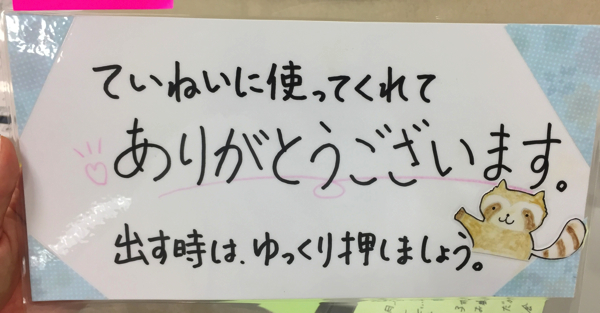 ていねいに使ってくれて
ありがとうございます。
出す時は、ゆっくり押しましょう。